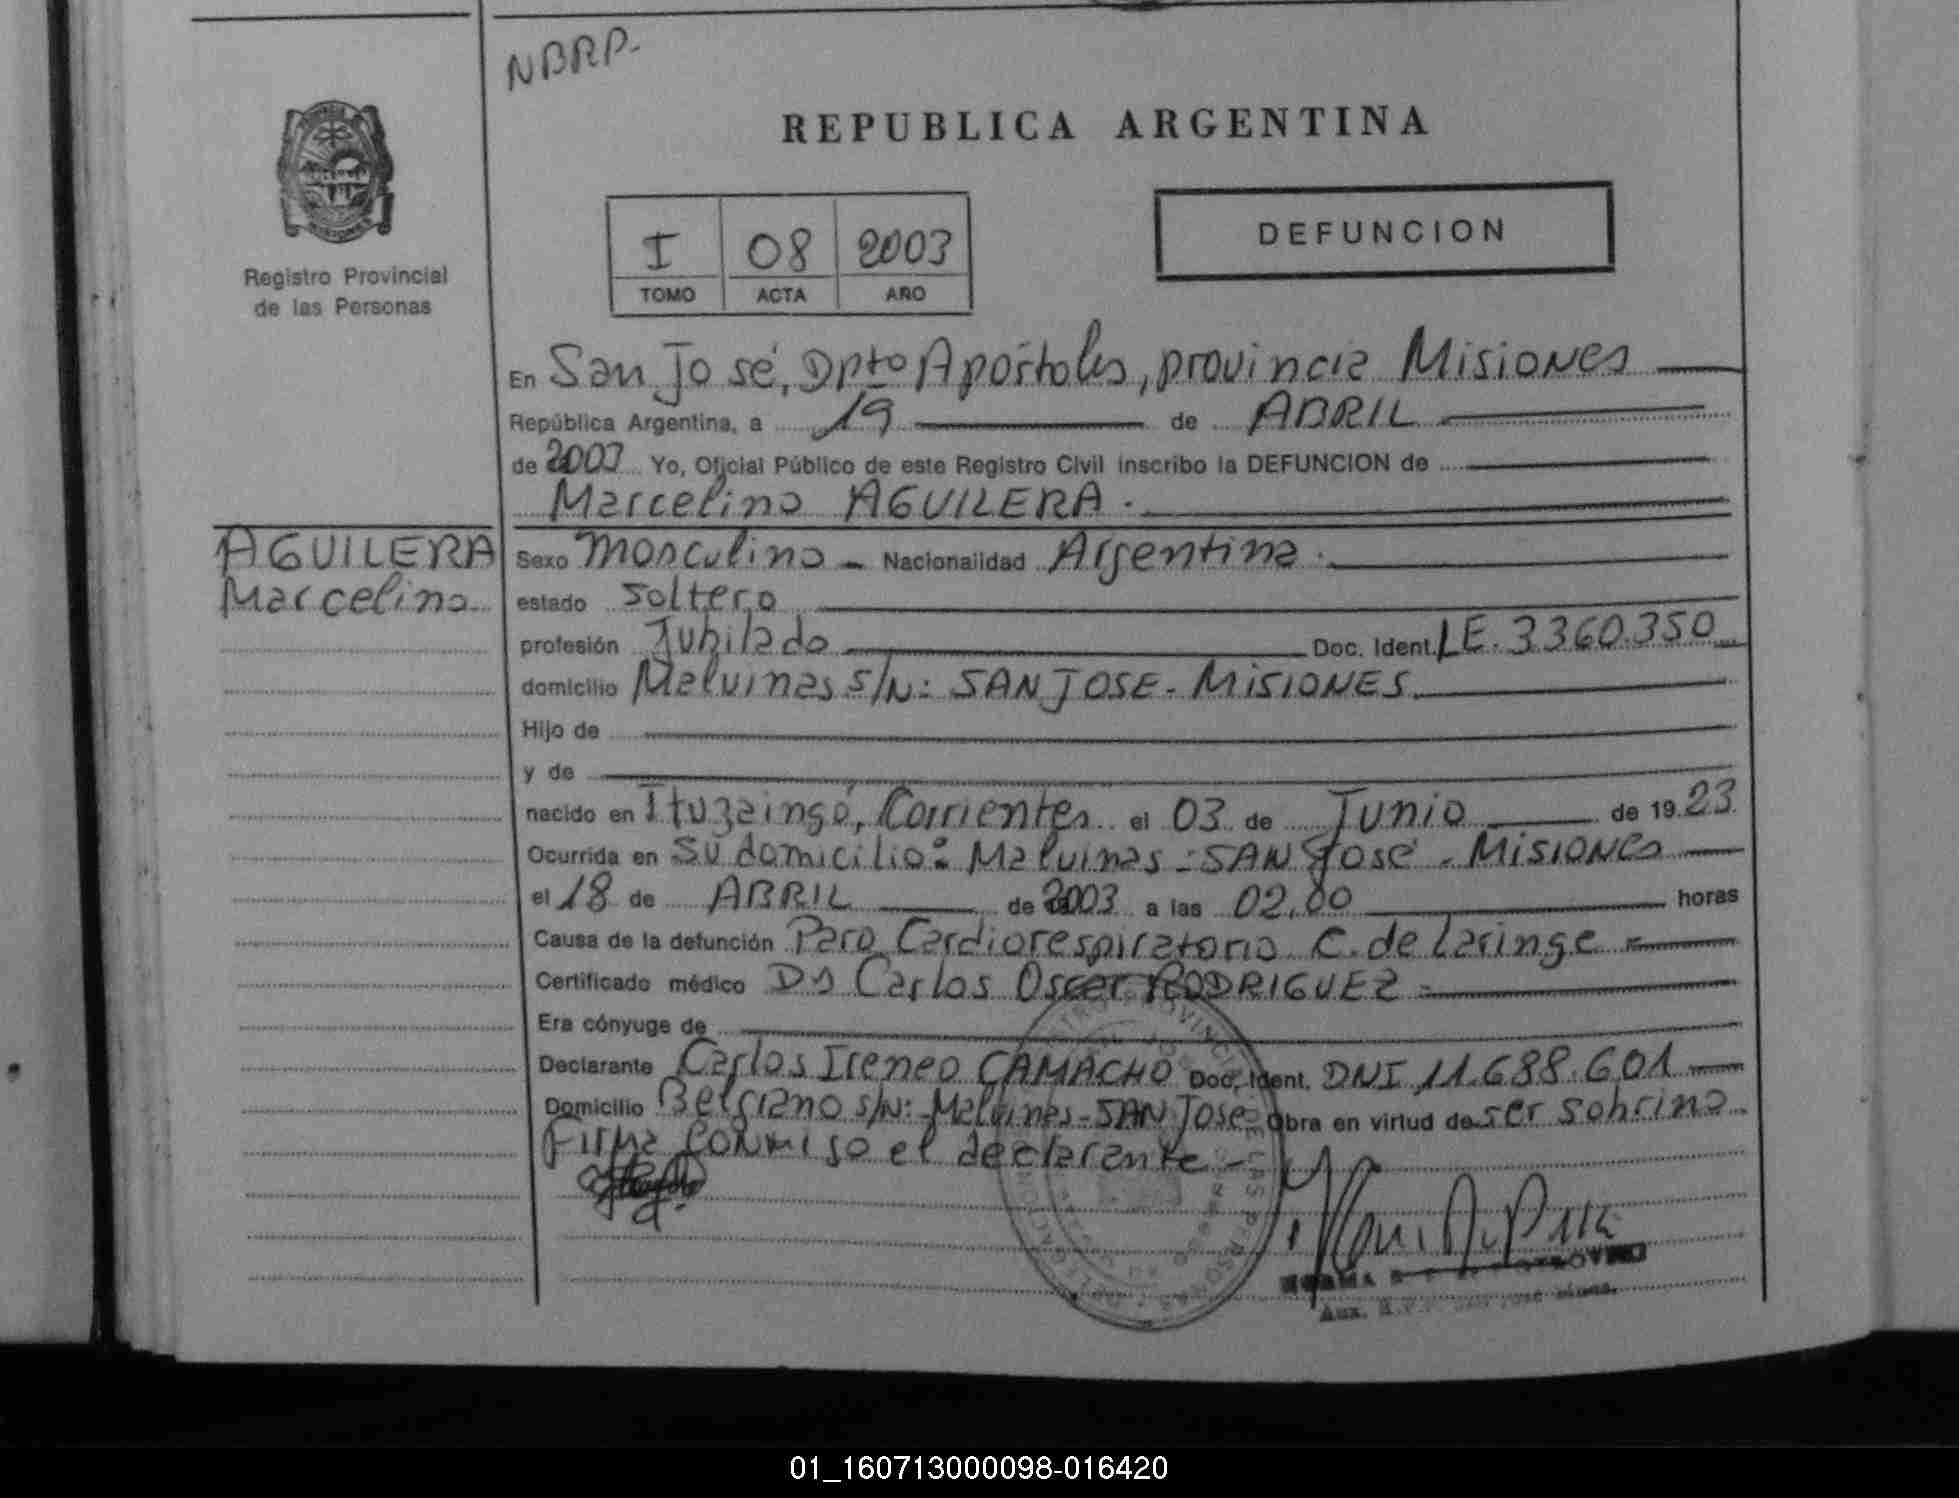 NBRP.
REPUBLICA ARGENTINA
Registro Provincial
de las Personas
I 08 2003
TOMO ACTA AÑO
DEFUNCION
En San José, Dpto Apóstoles, provincia Misiones
República Argentina, a 19 de ABRIL
de 2003 Yo, Oficial Público de este Registro Civil inscribo la DEFUNCION de
Marcelino AGUILERA.
AGUILERA
Marcelino
Sexo Masculino - Nacionalidad Argentina.
estado soltero
profesión Jubilado Doc. Ident. LE. 3360.350
domicilio Malvinas S/N: SAN JOSE - MISIONES.
Hijo de
y de
nacido en Ituzaingó, Corrientes el 03 de Junio de 1923
Ocurrida en su domicilio: Malvinas - SAN José - MISIONES
el 18 de ABRIL de 2003 a las 02,00 horas
Causa de la defunción Paro Cardiorespiratorio C. de Laringe =
Certificado médico Dr Carlos Oscar RODRIGUEZ =
Era cónyuge de
Declarante Carlos Ireneo CAMACHO Doc. Ident. DNI 11.688.601
Domicilio Belgrano s/N: Malvinas - SAN Jose Obra en virtud de ser sobrino
Firma conmigo el declarante -
NORMA
Aux.
01_160713000098-016420